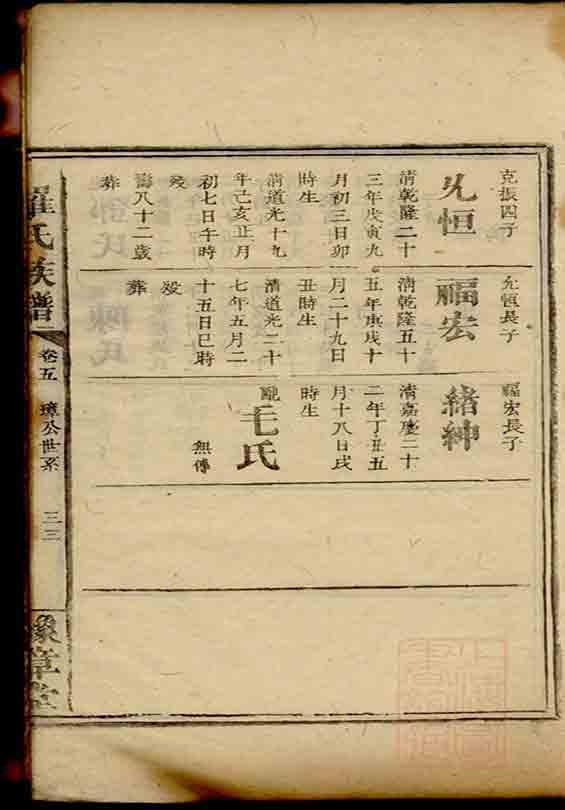 克振四子
允恒
清乾隆二十
三年戊寅九
月初三日卯
時生
清道光十九
年己亥正月
初七日午時
歿
壽八十二歲
葬
允恒長子
福宏
清乾隆五十
五年庚戌十
月二十九日
丑時生
清道光二十
七年五月二
十五日巳時
歿
葬
福宏長子
緒紳
清嘉慶二十
二年丁丑五
月十八日戌
時生
配
毛氏
無傳
羅氏族譜
卷五
璋公世系
三三
豫章堂